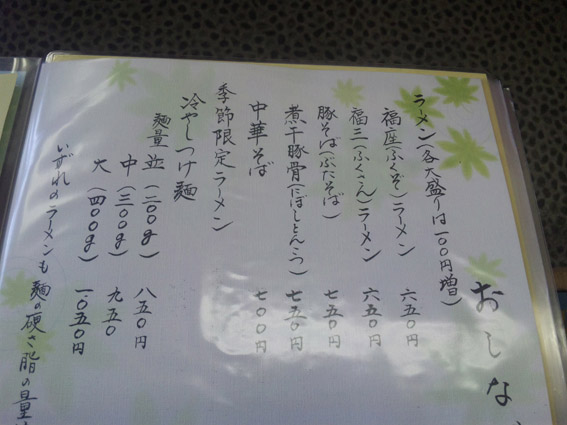 おしな
ラーメン(各大盛りは一〇〇円増)
福座(ふくぞ)ラーメン 六五〇円
福三(ふくさん)ラーメン 六五〇円
豚そば(ぶたそば) 七五〇円
煮干豚骨(にぼしとんこつ) 七五〇円
中華そば 七〇〇円
季節限定ラーメン
冷やしつけ麺
麺量 並(二〇〇g) 八五〇円
中(三〇〇g) 九五〇
大(四〇〇g) 一、〇五〇円
いずれのラーメンも麺の硬さ脂の量